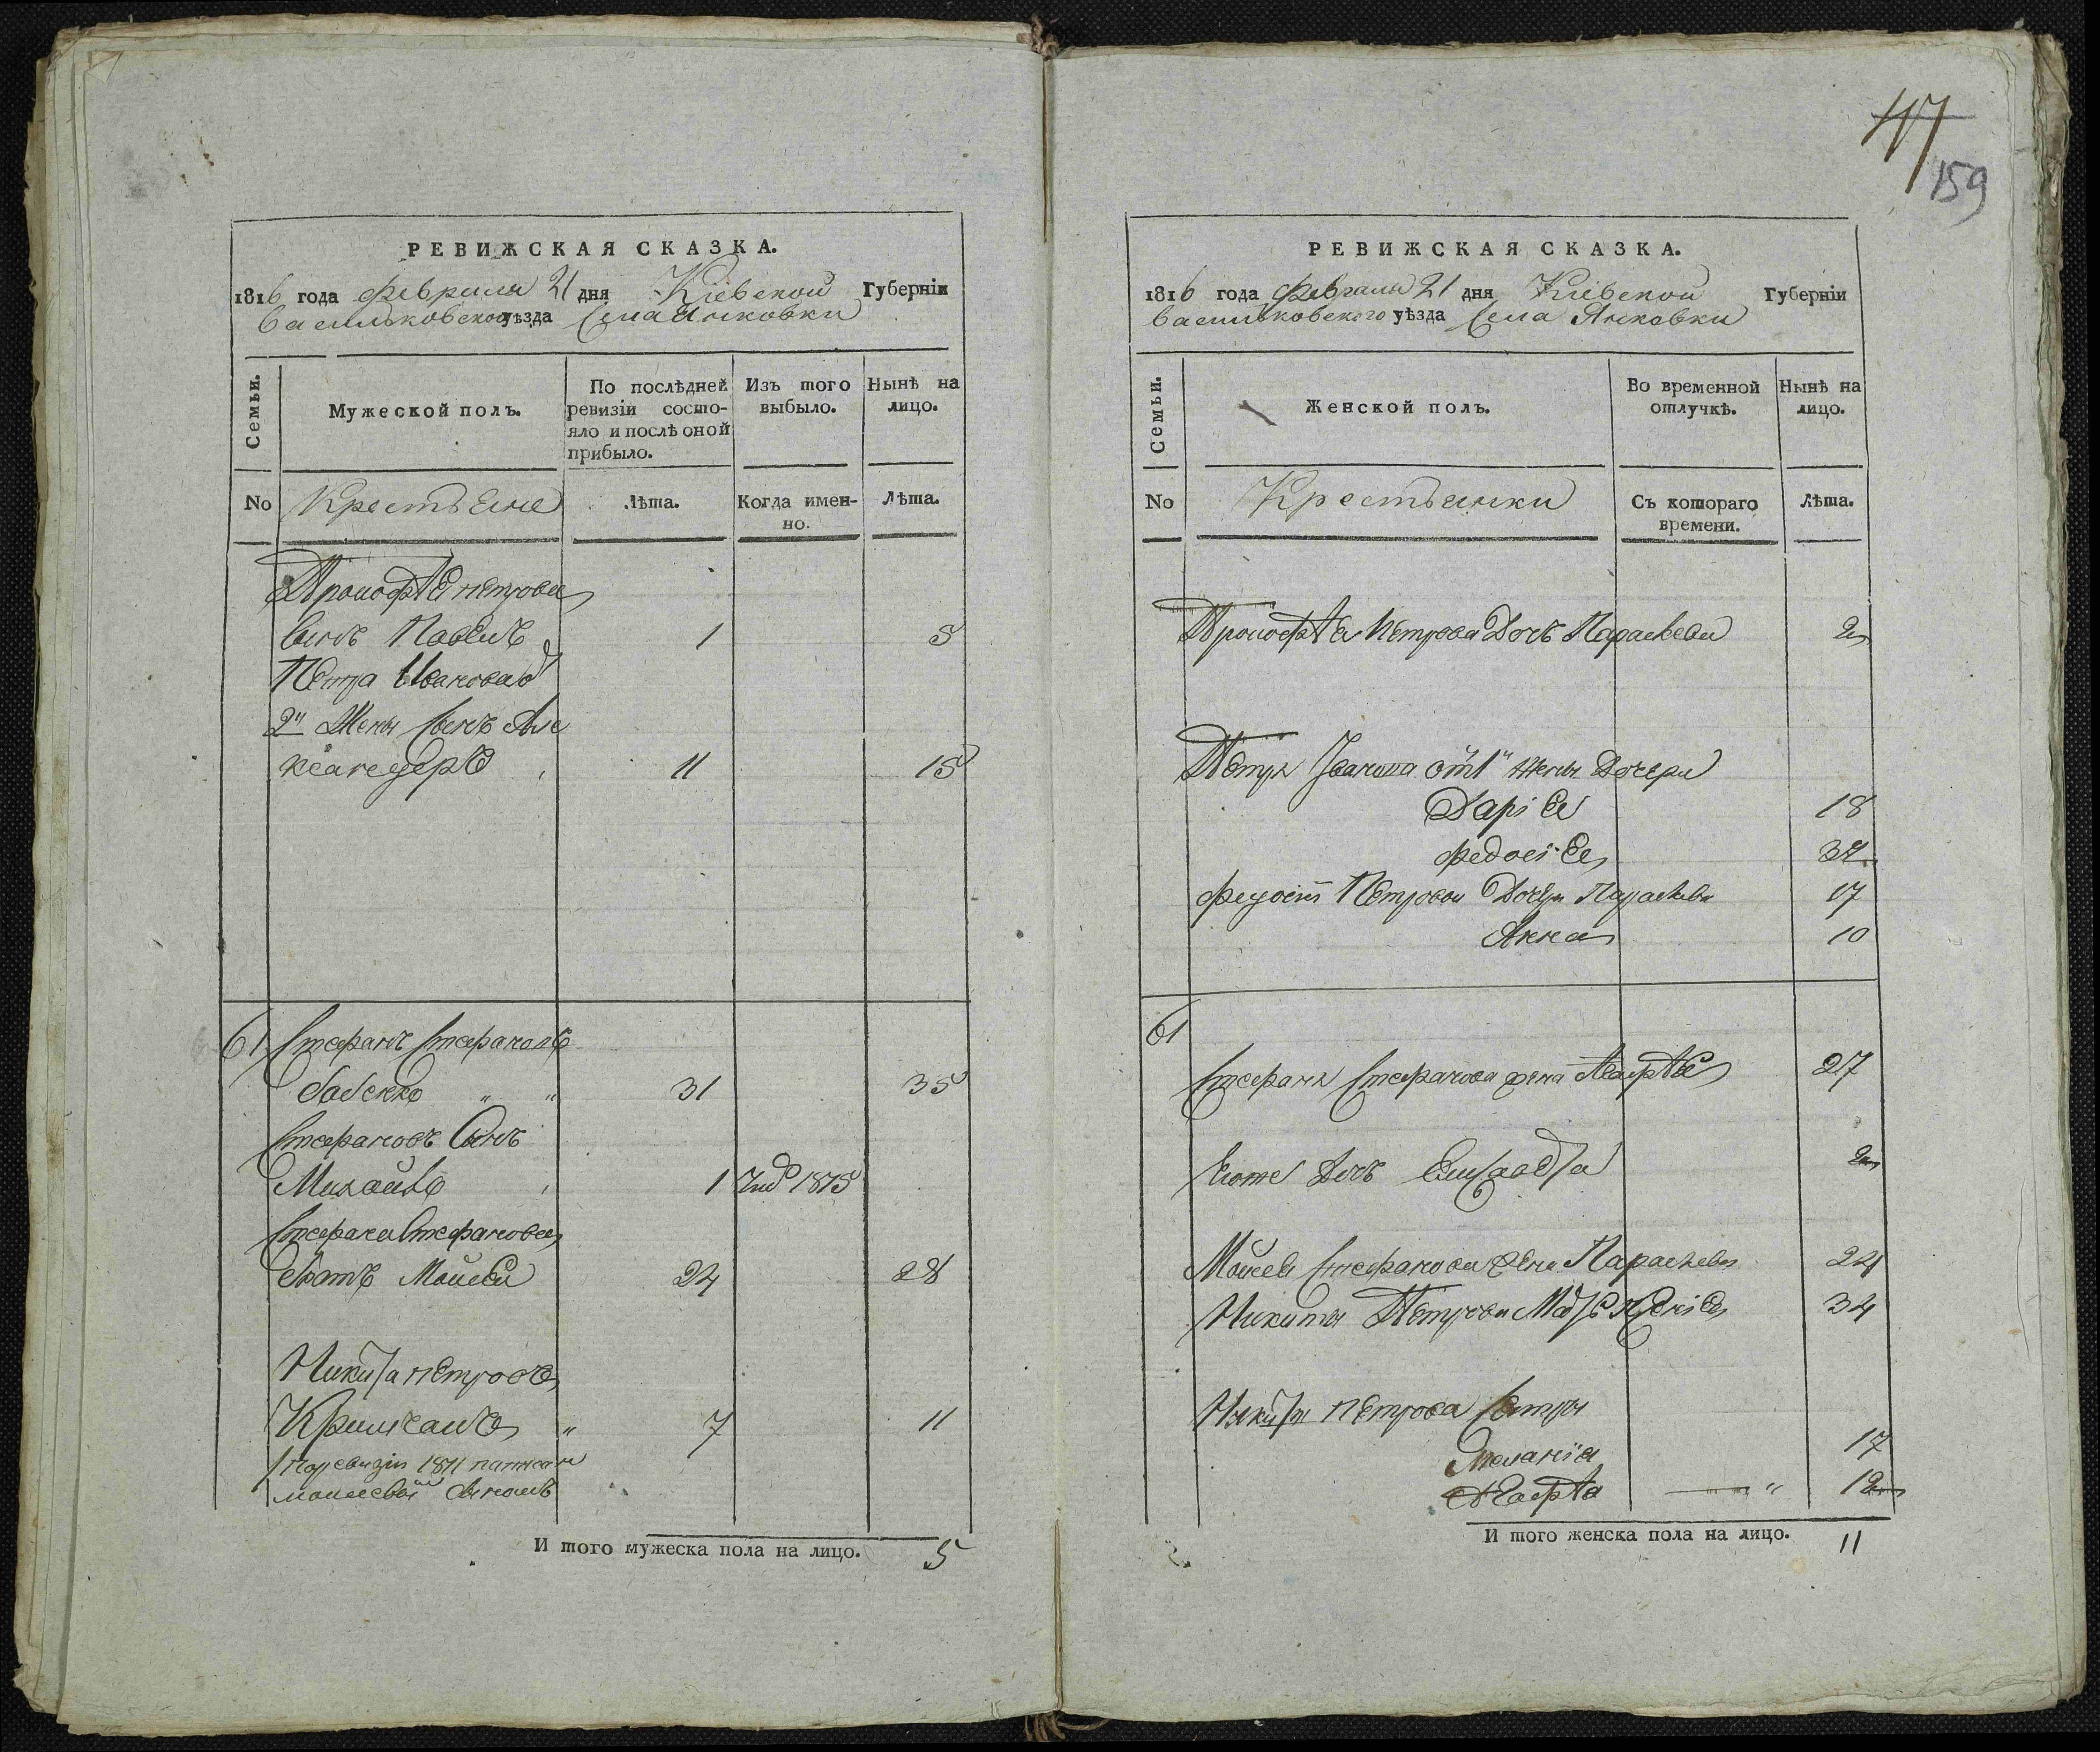 РЕВИЖСКАЯ СКАЗКА.
1816 года февраля 21 дня Кіевской Губерніи
васильковского уѣзда Села Янковки
Семьи.
Мужеской полъ.
По послѣдней ревизіи состо-
яло и послѣ оной
прибыло.
Изъ того
выбыло.
Нынѣ на
лицо.
No
Крестьяне
Лѣта.
Когда имен-
но.
Лѣта.
Прокофѣя петрова
сынъ Павелъ 1 5
Петра Иванова от
2й Жены сынъ Але
ксандеръ 11 15
61 Стефанъ Стефановъ
Бабенко " " 31 35
Стефановъ Сынъ
Михайло 1 1815
Стефана Стефанова
братъ Мойсей 24 28
Никита петровъ
Кришталь " 7 11
по ревизіи 1811 написан
моисеевым сыномъ
И того мужеска пола на лицо. 5
117
159
РЕВИЖСКАЯ СКАЗКА.
1816 года февраля 21 дня Кіевской Губерніи
васильковского уѣзда Села Янковки
Семьи.
Женской полъ.
Во временной
отлучкѣ.
Нынѣ на
лицо.
No
Крестьянки
Съ котораго
времени.
Лѣта.
Прокофѣя Петрова Дочь Параскева 2
Петра Іванова от 1й жены Дочери
Дарія 18
федосія 37
федосіи Петровой Дочери Параскева 17
Анна 10
61
Стефана Стефанова жена Агафѣя 27
Его же Дочь Елисавета 2
Мойсея Стефанова жена Параскева 24
Никиты Петрова Мать Ксенія 34
Никиты петрова сестры
Меланія 17
Агафѣя " 12
И того женска пола на лицо. 11